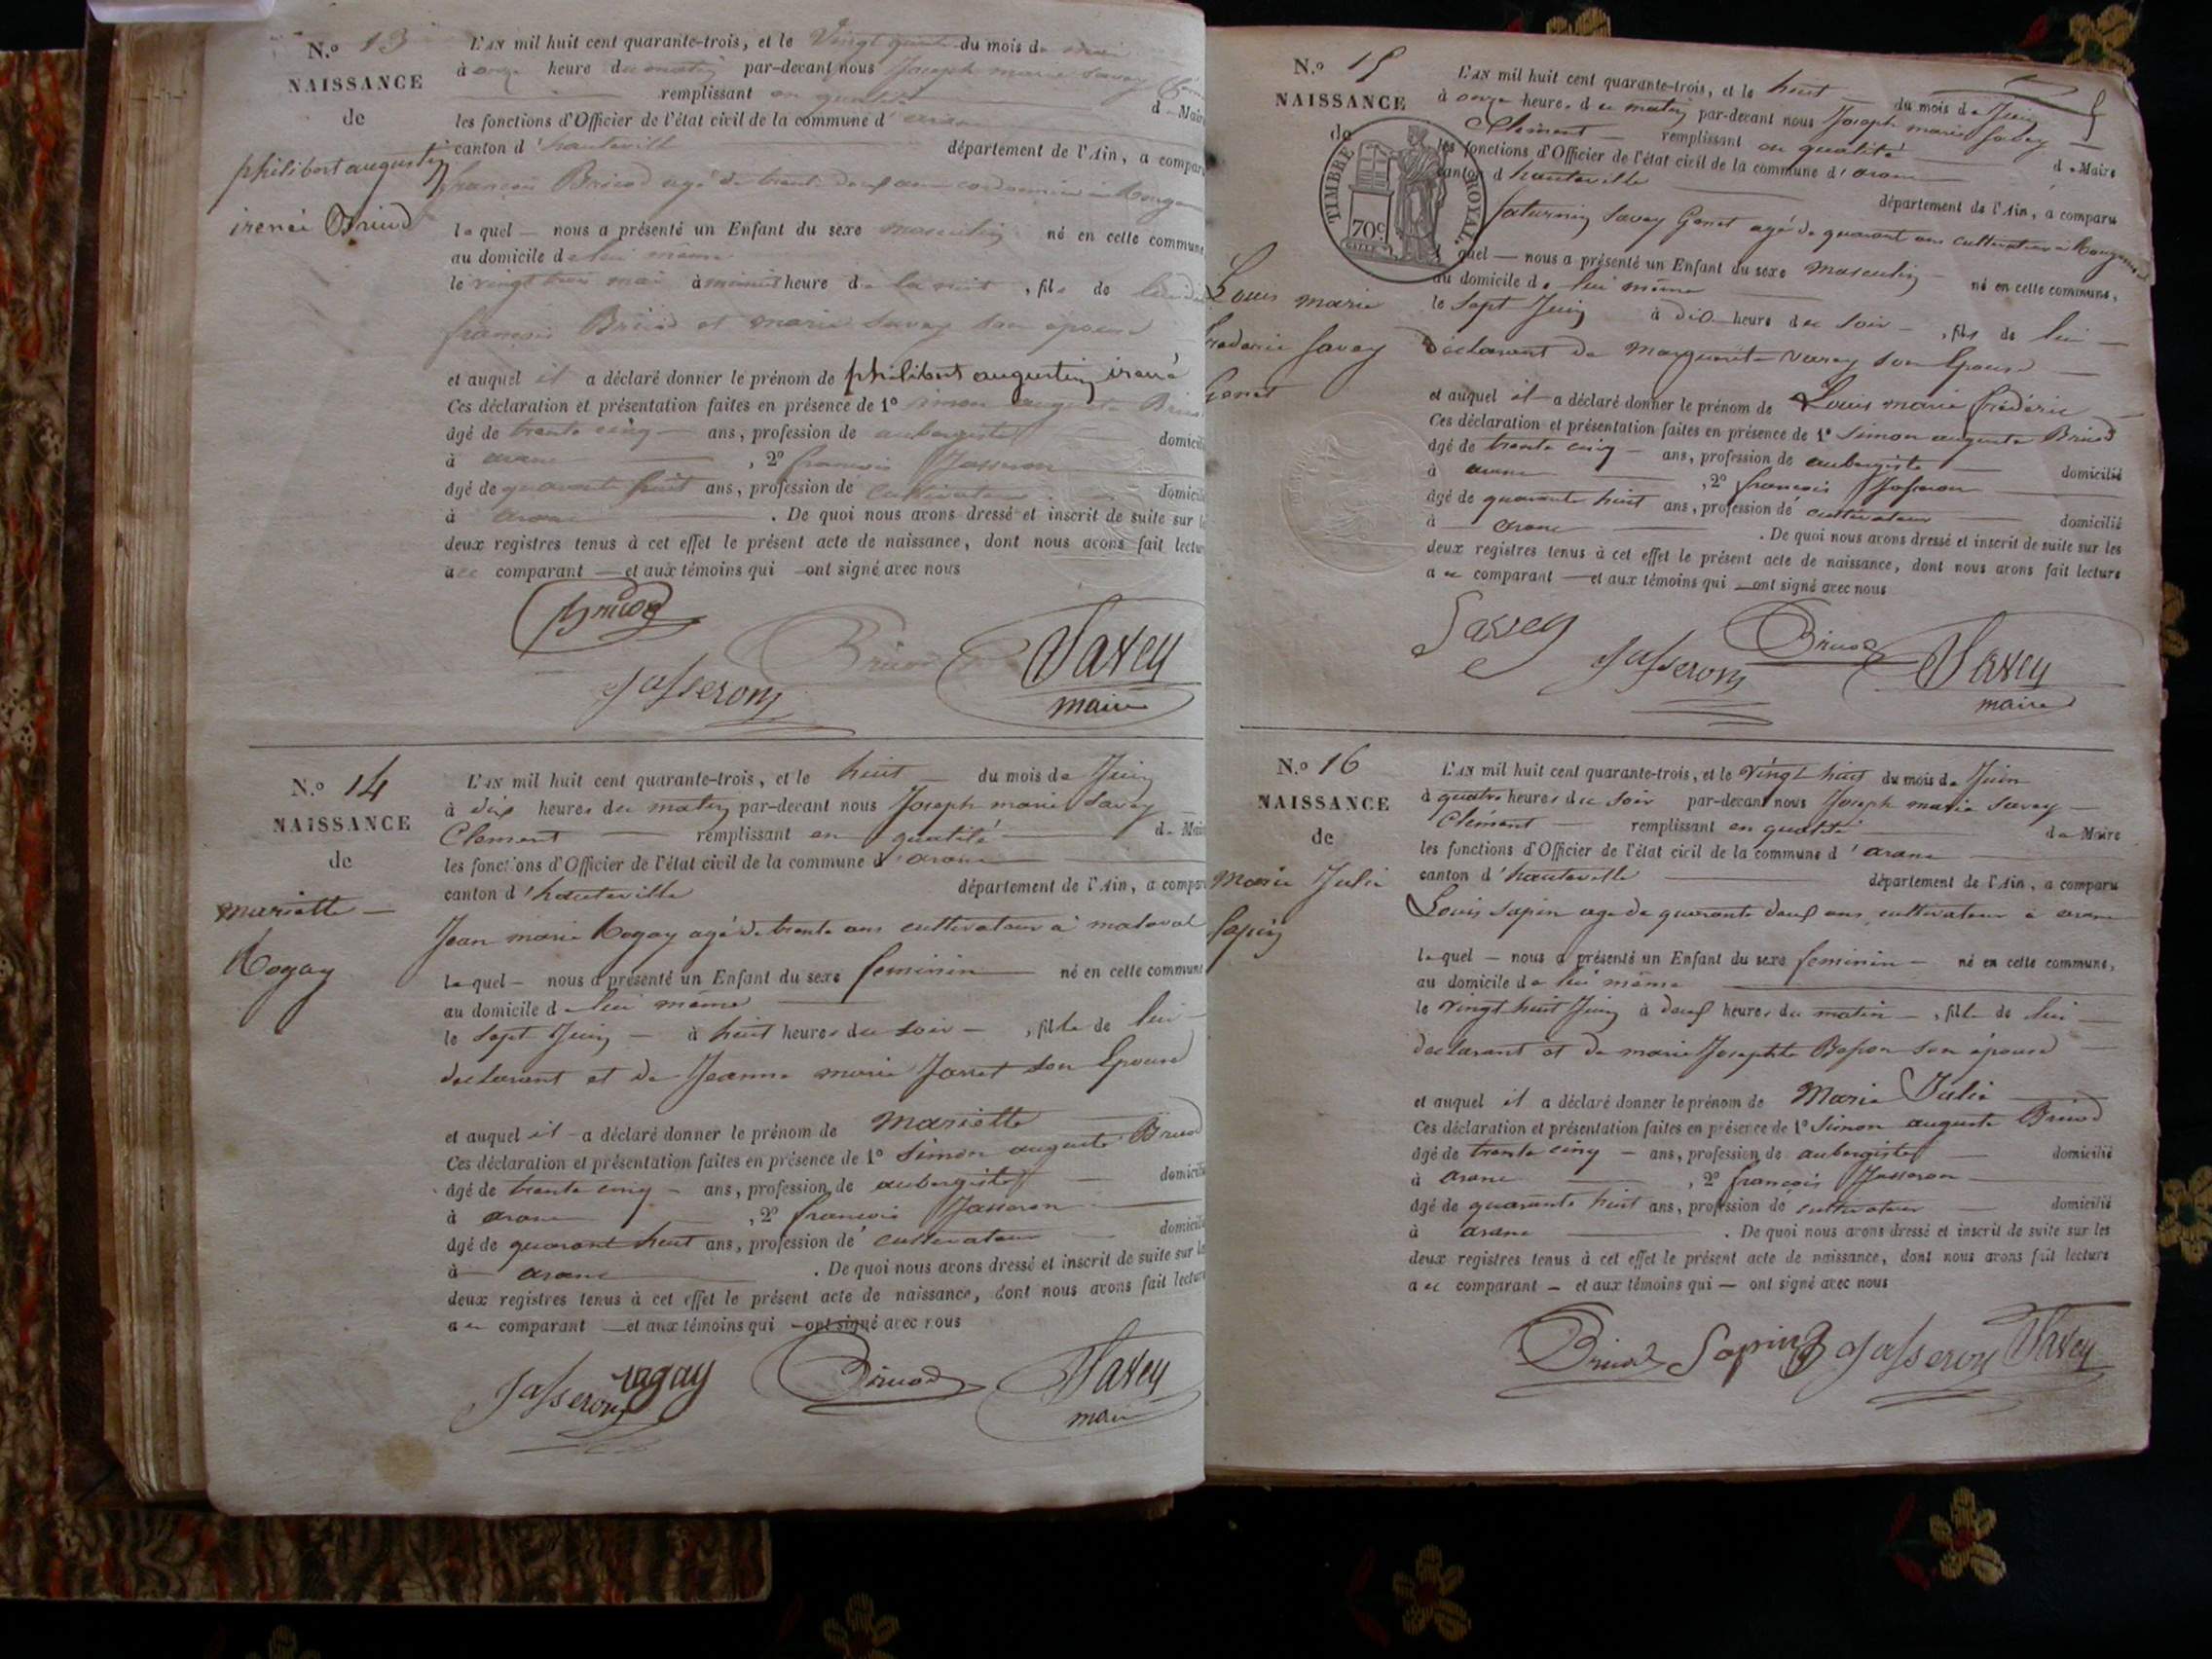 N.o 13
NAISSANCE
de
philibert augustin
irenée Bruod
L'AN mil huit cent quarante-trois, et le Vingt quatre du mois de mai
à onze heure du matin par-devant nous Joseph marie Savey
remplissant en qualité de Maire
les fonctions d'Officier de l'état civil de la commune d'aranc
canton d'hauteville département de l'Ain, a comparu
françois Bruod agé de trente deux ans cordonnier à
lequel — nous a présenté un Enfant du sexe masculin né en cette commune
au domicile de lui même
le vingt trois mai à minuit heure de la nuit, fils de lui dit
françois Bruod et marie Savey son épouse
et auquel il a déclaré donner le prénom de philibert augustin irené
Ces déclaration et présentation faites en présence de 1o simon auguste Bruod
âgé de trente cinq — ans, profession de aubergiste domicilié
à aranc, 2o françois Jasseron
âgé de quarante huit ans, profession de cultivateur domicilié
à aranc. De quoi nous avons dressé et inscrit de suite sur les
deux registres tenus à cet effet le présent acte de naissance, dont nous avons fait lecture
au comparant — et aux témoins qui ont signé avec nous
Bruod
Bruod
Jasseron
Savey
maire
N.o 14
NAISSANCE
de
mariette —
Rogay
L'AN mil huit cent quarante-trois, et le huit — du mois de Juin
à dix heures du matin par-devant nous Joseph marie Savey
Clement — remplissant en qualité de Maire
les fonctions d'Officier de l'état civil de la commune d'aranc
canton d'hauteville département de l'Ain, a comparu
Jean marie Rogay agé de trente ans cultivateur à malaval
lequel — nous a présenté un Enfant du sexe feminin né en cette commune
au domicile de lui même
le sept Juin — à huit heures du soir —, fille de lui
declarant et de Jeanne marie Jarret son Epouse
et auquel il a déclaré donner le prénom de Mariette
Ces déclaration et présentation faites en présence de 1o Simon auguste Bruod
âgé de trente cinq — ans, profession de aubergiste — domicilié
à aranc, 2o francois Jasseron
âgé de quarant huit ans, profession de cultivateur domicilié
à aranc. De quoi nous avons dressé et inscrit de suite sur les
deux registres tenus à cet effet le présent acte de naissance, dont nous avons fait lecture
au comparant — et aux témoins qui — ont signé avec nous
Jasseron ragay Bruod Savey
maire
N.o 15
NAISSANCE
de
TIMBRE ROYAL.
70c.
Louis marie
frederic Savey
Genet
L'AN mil huit cent quarante-trois, et le huit du mois de Juin
à onze heures du matin par-devant nous Joseph marie Savey
Clement — remplissant en qualité de Maire
les fonctions d'Officier de l'état civil de la commune d'aranc
canton d'hauteville département de l'Ain, a comparu
Saturnin Savey Genet agé de quarant ans cultivateur à
lequel — nous a présenté un Enfant du sexe Masculin — né en cette commune,
au domicile de lui même
le sept Juin à dix heure du soir —, fils de lui —
déclarant de Marguerite Varey son Epouse
et auquel il a déclaré donner le prénom de Louis marie frédéric
Ces déclaration et présentation faites en présence de 1o Simon auguste Bruod
âgé de trente cinq — ans, profession de aubergiste — domicilié
à aranc, 2o françois Jasseron
âgé de quarante huit ans, profession de cultivateur domicilié
à aranc. De quoi nous avons dressé et inscrit de suite sur les
deux registres tenus à cet effet le présent acte de naissance, dont nous avons fait lecture
au comparant — et aux témoins qui — ont signé avec nous
Savey
Jasseron
Bruod
Savey
maire
N.o 16
NAISSANCE
de
Marie Julie
Sapin
L'AN mil huit cent quarante-trois, et le Vingt huit du mois de Juin
à quatre heures du soir par-devant nous Joseph marie Savey —
Clément — remplissant en qualité de Maire
les fonctions d'Officier de l'état civil de la commune d'aranc
canton d'hauteville département de l'Ain, a comparu
Louis Sapin age de quarante deux ans cultivateur à aranc
lequel — nous a présenté un Enfant du sexe feminin — né en cette commune,
au domicile de lui même
le Vingt huit Juin à deux heures du matin —, fille de lui —
declarant et de marie Josephte Besson son épouse
et auquel il a déclaré donner le prénom de Marie Julie
Ces déclaration et présentation faites en présence de 1o Simon auguste Bruod
âgé de trente cinq — ans, profession de aubergiste — domicilié
à aranc, 2o françois Jasseron
âgé de quarante huit ans, profession de cultivateur — domicilié
à aranc. De quoi nous avons dressé et inscrit de suite sur les
deux registres tenus à cet effet le présent acte de naissance, dont nous avons fait lecture
au comparant — et aux témoins qui — ont signé avec nous
Bruod Sapin Jasseron Savey